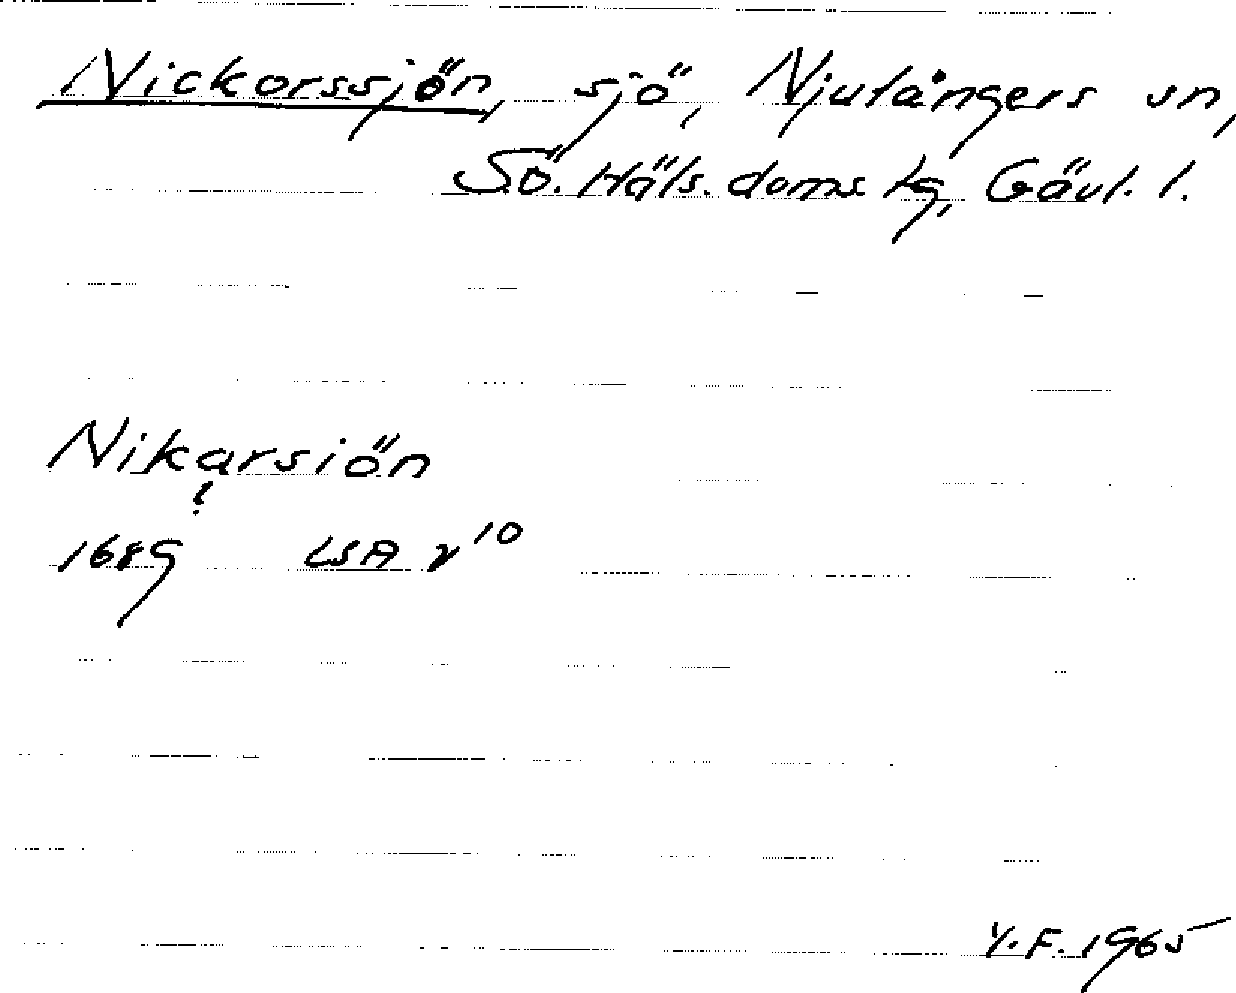 Nickorssjön, sjö, Njutångers sn,
Sö. Häls. doms lg, Gävl. l.
Nikarsiön
!
1689 LSA v 10
Y.F. 1965